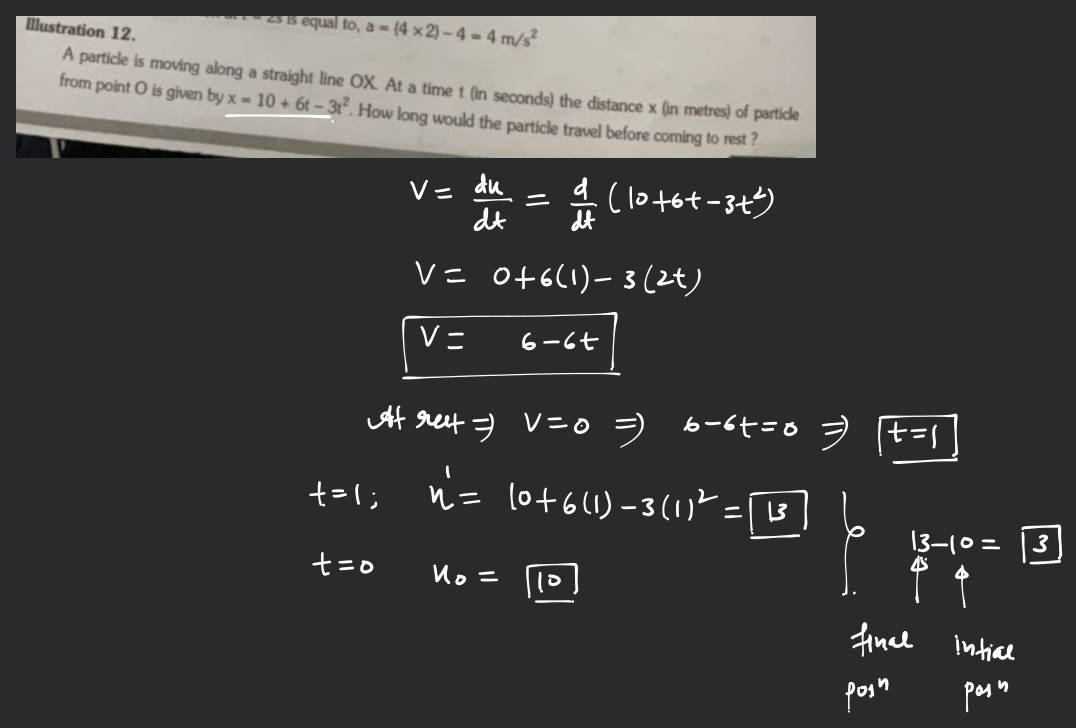 2s is equal to, a = (4 × 2) – 4 = 4 m/s²
Illustration 12.
A particle is moving along a straight line OX. At a time t (in seconds) the distance x (in metres) of particle
from point O is given by x = 10 + 6t – 3t². How long would the particle travel before coming to rest ?
V = dx/dt = d/dt (10+6t-3t²)
V = 0+6(1)-3(2t)
V = 6-6t
At rest ⇒ V=0 ⇒ 6-6t=0 ⇒ t=1
t=1; x₁ = 10+6(1)-3(1)² = 13
13-10 = 3
t=0 x₀ = 10
final intial
posⁿ posⁿ